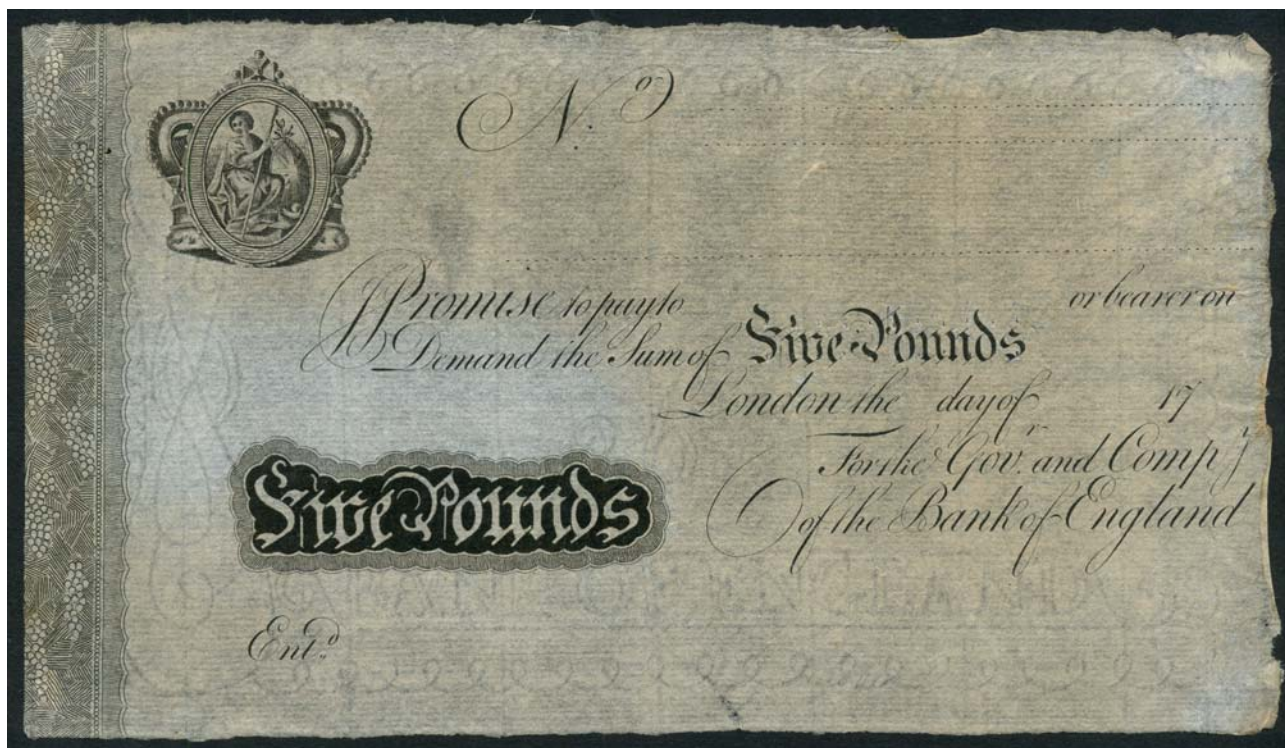 No
I Promise to pay to or bearer on
Demand the Sum of Five Pounds
London the day of 17
For the Govr. and Compy.
of the Bank of England
Five Pounds
Entd.